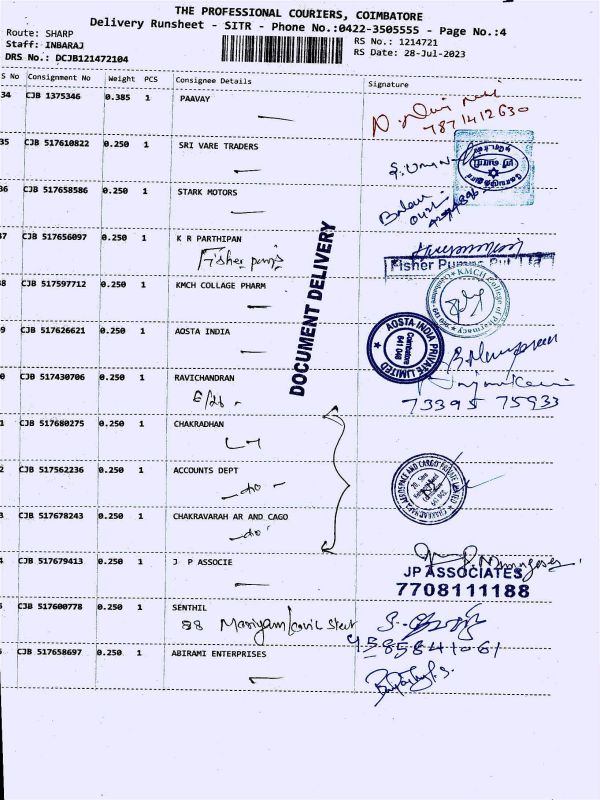 THE PROFESSIONAL COURIERS, COIMBATORE
Delivery Runsheet - SITR - Phone No.:0422-3505555 - Page No.:4
Route: SHARP
Staff: INBARAJ
DRS No.: DCJB121472104
RS No.: 1214721
RS Date: 28-Jul-2023
S No Consignment No Weight PCS Consignee Details Signature
34 CJB 1375346 0.385 1 PAAVAY
7871412630
35 CJB 517610822 0.250 1 SRI VARE TRADERS
36 CJB 517658586 0.250 1 STARK MOTORS
37 CJB 517656097 0.250 1 K R PARTHIPAN
Fisher pumps
Fisher Pumps Pvt Ltd
8 CJB 517597712 0.250 1 KMCH COLLAGE PHARM
KMCH College of Pharmacy
9 CJB 517626621 0.250 1 AOSTA INDIA
AOSTA INDIA PRIVATE LIMITED
Coimbatore
641 048
DOCUMENT DELIVERY
0 CJB 517430706 1 0.250 1 RAVICHANDRAN
73395 75933
1 CJB 517680275 0.250 1 CHAKRADHAN
2 CJB 517562236 0.250 1 ACCOUNTS DEPT
-do-
3 CJB 517678243 0.250 1 CHAKRAVARAH AR AND CAGO
-do-
AEROSPACE AND CARGO PRIVATE LIMITED
4 CJB 517679413 0.250 1 J P ASSOCIE
JP ASSOCIATES
7708111188
5 CJB 517600778 0.250 1 SENTHIL
88
9585841061
6 CJB 517658697 0.250 1 ABIRAMI ENTERPRISES